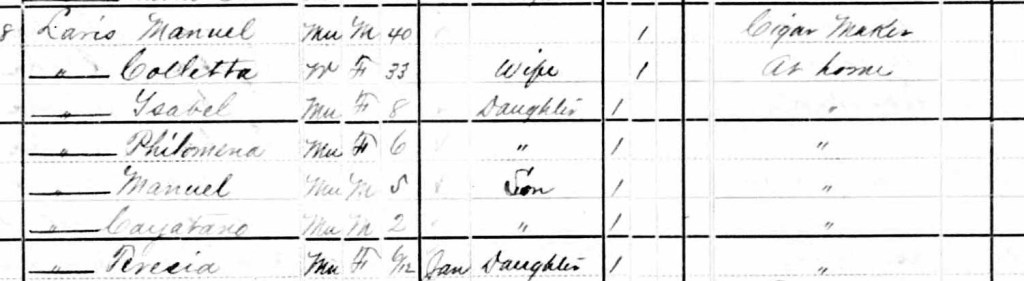 8 Laris Manuel Mu M 40 1 Cigar Maker
" Colletta W F 33 Wife 1 At home
" Isabel Mu F 8 Daughter 1 "
" Philomena Mu F 6 " 1 "
" Manuel Mu M 5 Son 1 "
" Cayatano Mu M 2 " 1 "
" Teresia Mu F 6/12 Jan Daughter 1 "